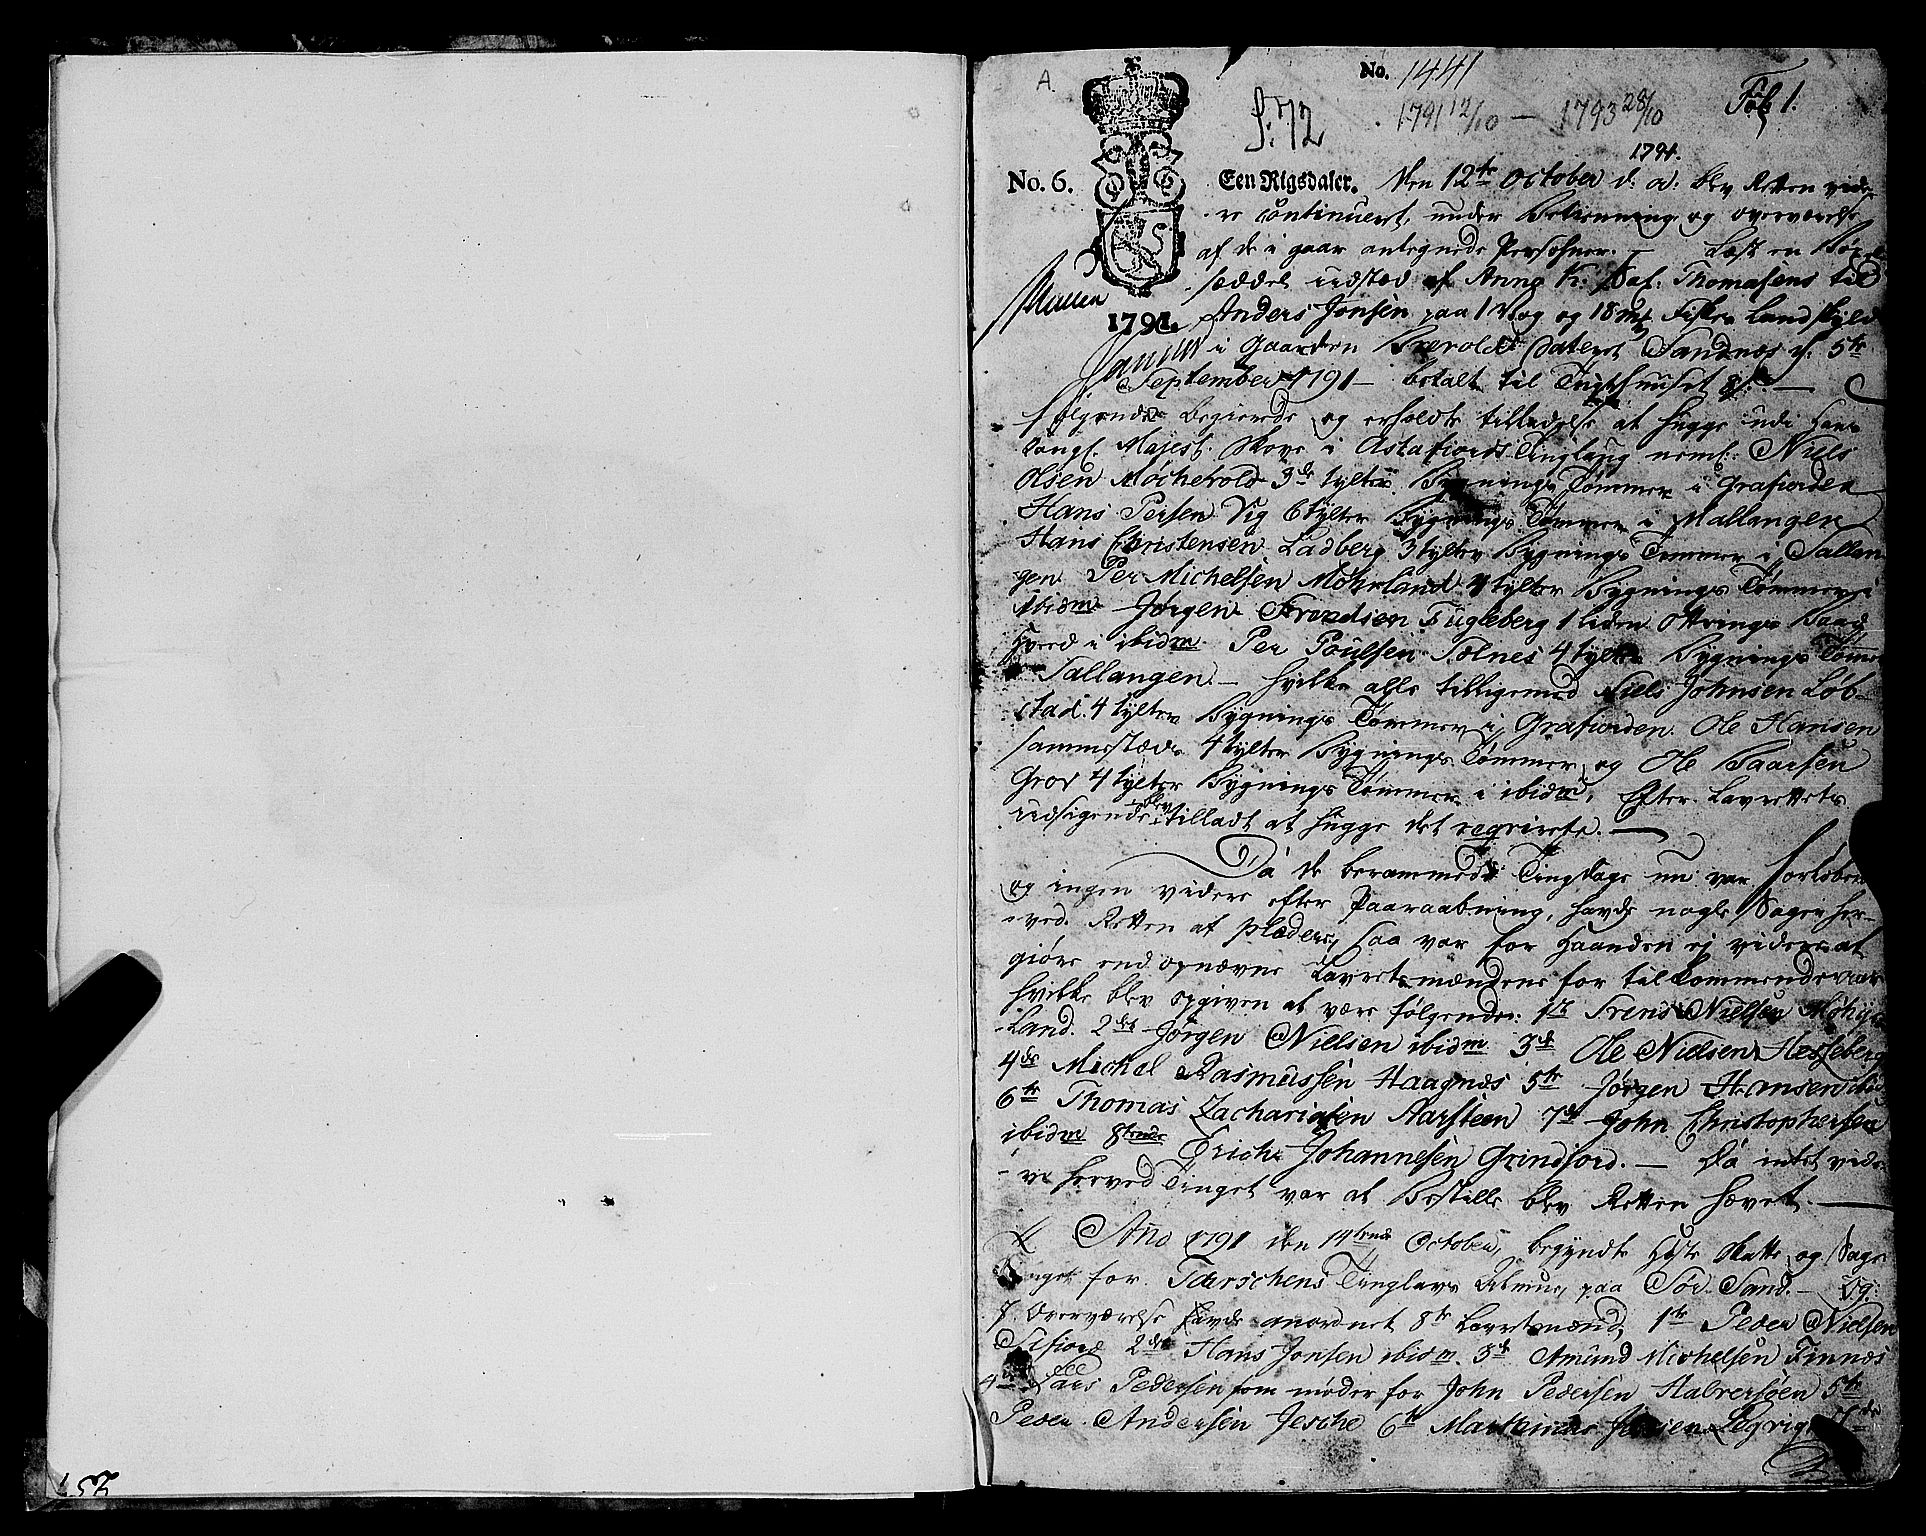 A.
No. 1441
f: 72
1791 12/10 — 1793 28/10
Fol 1.
1791.
No. 6.
Een Rigsdaler. Den 12te October d: a: blev Retten vide-
re Continueret, under Betienning og overværelse
af de i gaar antegnede Persohner. — Læst en Bøx-
seddel udstæd af Anna K: Sal: Thomasens til
Anders Jonsen paa 1 Vog og 18 mk Fiskes Landskyld
1791.
i Gaarden dateret Sandnæs d: 5te
September 1791 — betalt til Tugthuuset
følgende begierede og erholdte tilladelse at hugge udi Hans
Kongl. Majest. Skove i Astafiords Tinglaug neml: Niels
Olsen 3de tylter Bygnings Tømmer i Grafiorden
Hans Persen Vig 6 tylter Bygnings Tømmer i Mallangen
Hans Christensen Ladberg 3 tylter Bygnings Tømmer i Sallan-
gen Per Michelsen 4 tylter Bygnings Tømmer i
ibidm Jørgen Fugleberg 1 liden Ottrings Baad
i ibidm Per Poulsen 4 tylter Bygnings Tømer
Sallangen — hvilke alle tilligemed Niels Johnsen Løb-
stad 4 tylter Bygnings Tømmer i Grafiorden Ole Hansen
sammestæds 4 tylter Bygnings Tømmer og Ole Baarsen
Grov 4 tylter Bygnings Tømmer i ibidm, Efter Lavrettets
udsigende blev tilladt at hugge det reqvirerte. —
Da de berammede Tingdage nu var forløben
og ingen videre efter Paaraabning, havde nogle Sager her-
ved Retten at plædere, saa var for Haanden ej videre at
giøre end opnævne Lavrets mændene for tilkommende aar
hvilke blev opgiven at være følgende: 1te Nielsen
Land. 2den Jørgen Nielsen ibidm 3de Ole Nielsen Hesseberg
4de Michel Rasmussen Haagnæs 5te Jørgen Hansen ibid
6te Thomas Zachariasen Aarsteen 7de John Christophersen
ibidm 8tende Erich Johannesen Grindford. — Da intet vide-
re herved Tinget var at Bestille blev Retten hævet. —
Ano 1791 den 14tende October, begyndte Høste Skatte og Sage
Tinget for Tinglavs Almue, paa Sør Sand. — Og
Overværelse havde anordnet 8te Lavretsmænd, 1te Peder Nielsen
2den Hans Jonsen ibidm. 3de Amund Michelsen Finnæs
4de Lars Pedersen som møder for John Pedersen Halversøen 5te
Peder Andersen 6te 7de